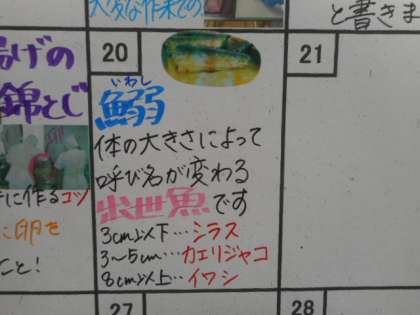 大変な作業での
と書きま
揚げの
錦とじ
に作るコツ
に卵を
こと!
20
いわし
鰯
体の大きさによって
呼び名が変わる
出世魚です
3cm以下…シラス
3~5cm…カエリジャコ
8cm以上…イワシ
21
27
28